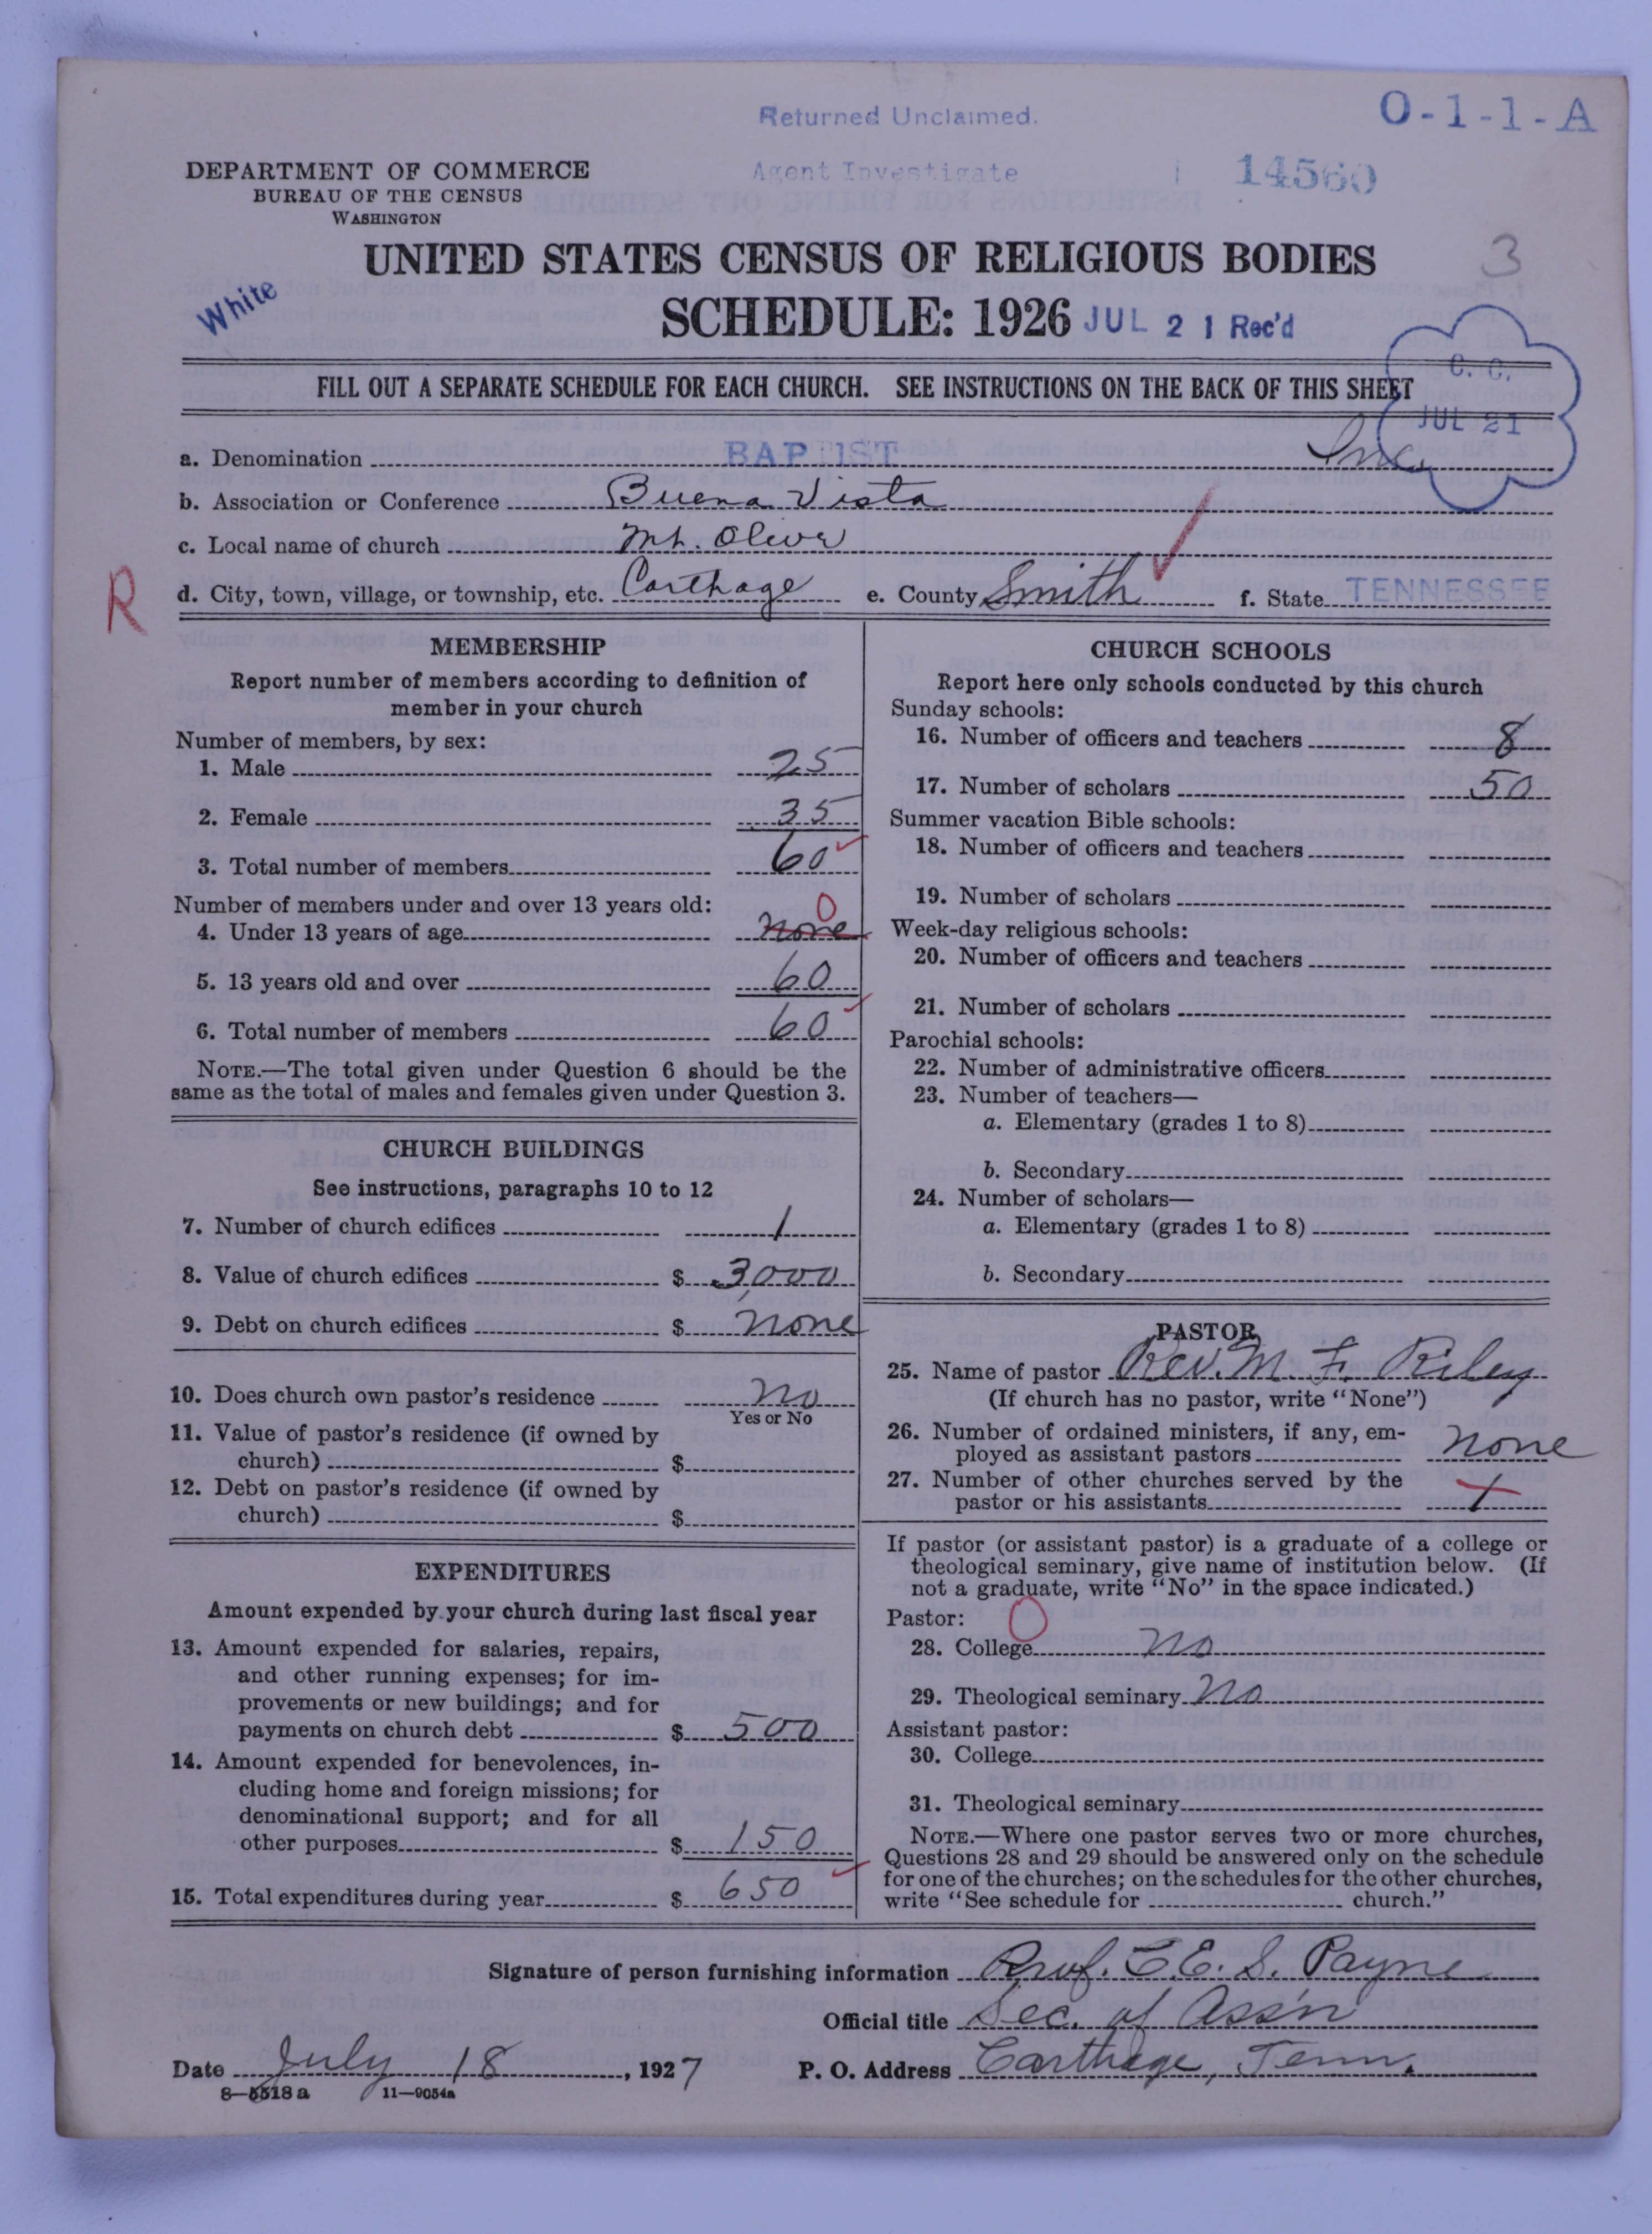 Returned Unclaimed.
O-1-1-A
Agent Investigate
14560
DEPARTMENT OF COMMERCE
BUREAU OF THE CENSUS
WASHINGTON
UNITED STATES CENSUS OF RELIGIOUS BODIES
3
White
SCHEDULE: 1926 JUL 21 Rec'd
C. C.
JUL 21
FILL OUT A SEPARATE SCHEDULE FOR EACH CHURCH. SEE INSTRUCTIONS ON THE BACK OF THIS SHEET
a. Denomination BAPTIST
b. Association or Conference Buena Vista
c. Local name of church Mt. Olive
R
d. City, town, village, or township, etc. Carthage e. County Smith f. State TENNESSEE
MEMBERSHIP
Report number of members according to definition of
member in your church
Number of members, by sex:
1. Male 25
2. Female 35
3. Total number of members 60
Number of members under and over 13 years old:
0
4. Under 13 years of age none
5. 13 years old and over 60
6. Total number of members 60
NOTE.—The total given under Question 6 should be the
same as the total of males and females given under Question 3.
CHURCH BUILDINGS
See instructions, paragraphs 10 to 12
7. Number of church edifices 1
8. Value of church edifices $ 3,000
9. Debt on church edifices $ none
10. Does church own pastor's residence no
Yes or No
11. Value of pastor's residence (if owned by
church) $
12. Debt on pastor's residence (if owned by
church) $
EXPENDITURES
Amount expended by your church during last fiscal year
13. Amount expended for salaries, repairs,
and other running expenses; for im-
provements or new buildings; and for
payments on church debt $ 500
14. Amount expended for benevolences, in-
cluding home and foreign missions; for
denominational support; and for all
other purposes $ 150
15. Total expenditures during year $ 650
CHURCH SCHOOLS
Report here only schools conducted by this church
Sunday schools:
16. Number of officers and teachers 8
17. Number of scholars 50
Summer vacation Bible schools:
18. Number of officers and teachers
19. Number of scholars
Week-day religious schools:
20. Number of officers and teachers
21. Number of scholars
Parochial schools:
22. Number of administrative officers
23. Number of teachers—
a. Elementary (grades 1 to 8)
b. Secondary
24. Number of scholars—
a. Elementary (grades 1 to 8)
b. Secondary
PASTOR
25. Name of pastor Rev. M. F. Riley
(If church has no pastor, write "None")
26. Number of ordained ministers, if any, em-
ployed as assistant pastors none
27. Number of other churches served by the
pastor or his assistants 1
If pastor (or assistant pastor) is a graduate of a college or
theological seminary, give name of institution below. (If
not a graduate, write "No" in the space indicated.)
Pastor: 0
28. College no
29. Theological seminary no
Assistant pastor:
30. College
31. Theological seminary
NOTE.—Where one pastor serves two or more churches,
Questions 28 and 29 should be answered only on the schedule
for one of the churches; on the schedules for the other churches,
write "See schedule for church."
Signature of person furnishing information Prof. C. E. S. Payne
Official title Sec. of Ass'n
Date July 18, 1927 P. O. Address Carthage, Tenn.
8—5518 a 11—9054a